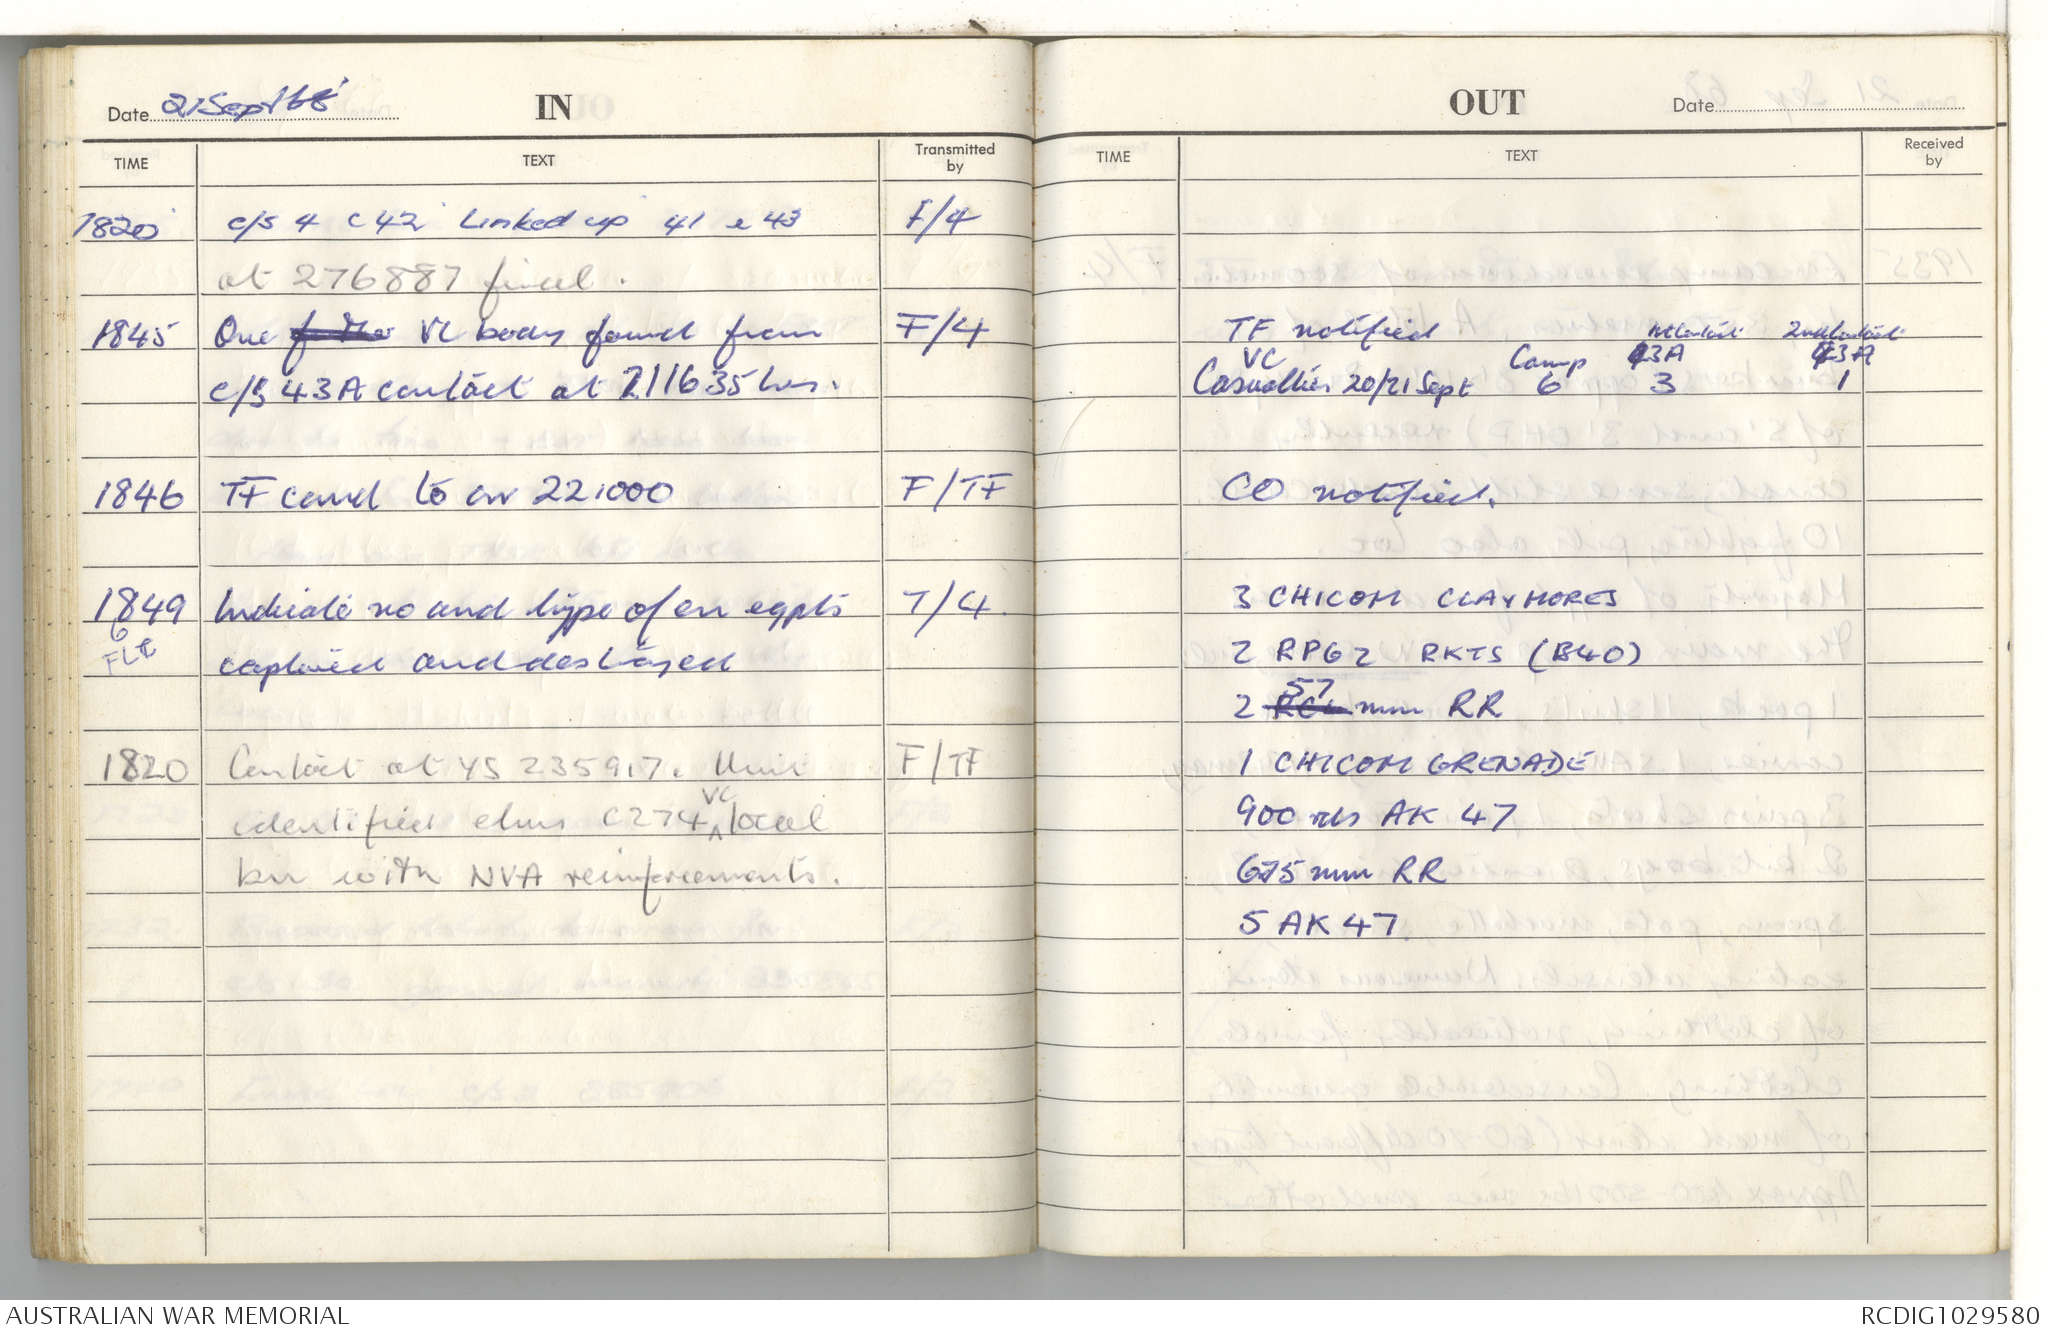 Date 21 Sept 68
IN
TIME TEXT Transmitted by
1820 c/s 4 C 42 Linked up 41 & 43 F/4
at 276887 final.
1845 One VC body found from F/4
c/s 43A contact at 211635 hrs.
1846 TF comd to arr 221000 F/TF
1849 Indicate no and type of en eqpts T/4
captured and destroyed
1820 Contact at YS 235917. Unit F/TF
identified elms C274 VC local
bn with NVA reinforcements.
OUT
Date
TIME TEXT Received by
TF notified
VC Camp 43A 43A
Casualties 20/21 Sept 6 3 1
CO notified.
3 CHICOM CLAYMORES
2 RPG2 RKTS (B40)
2 57 mm RR
1 CHICOM GRENADE
900 rds AK 47
675mm RR
5 AK 47
AUSTRALIAN WAR MEMORIAL
RCDIG1029580